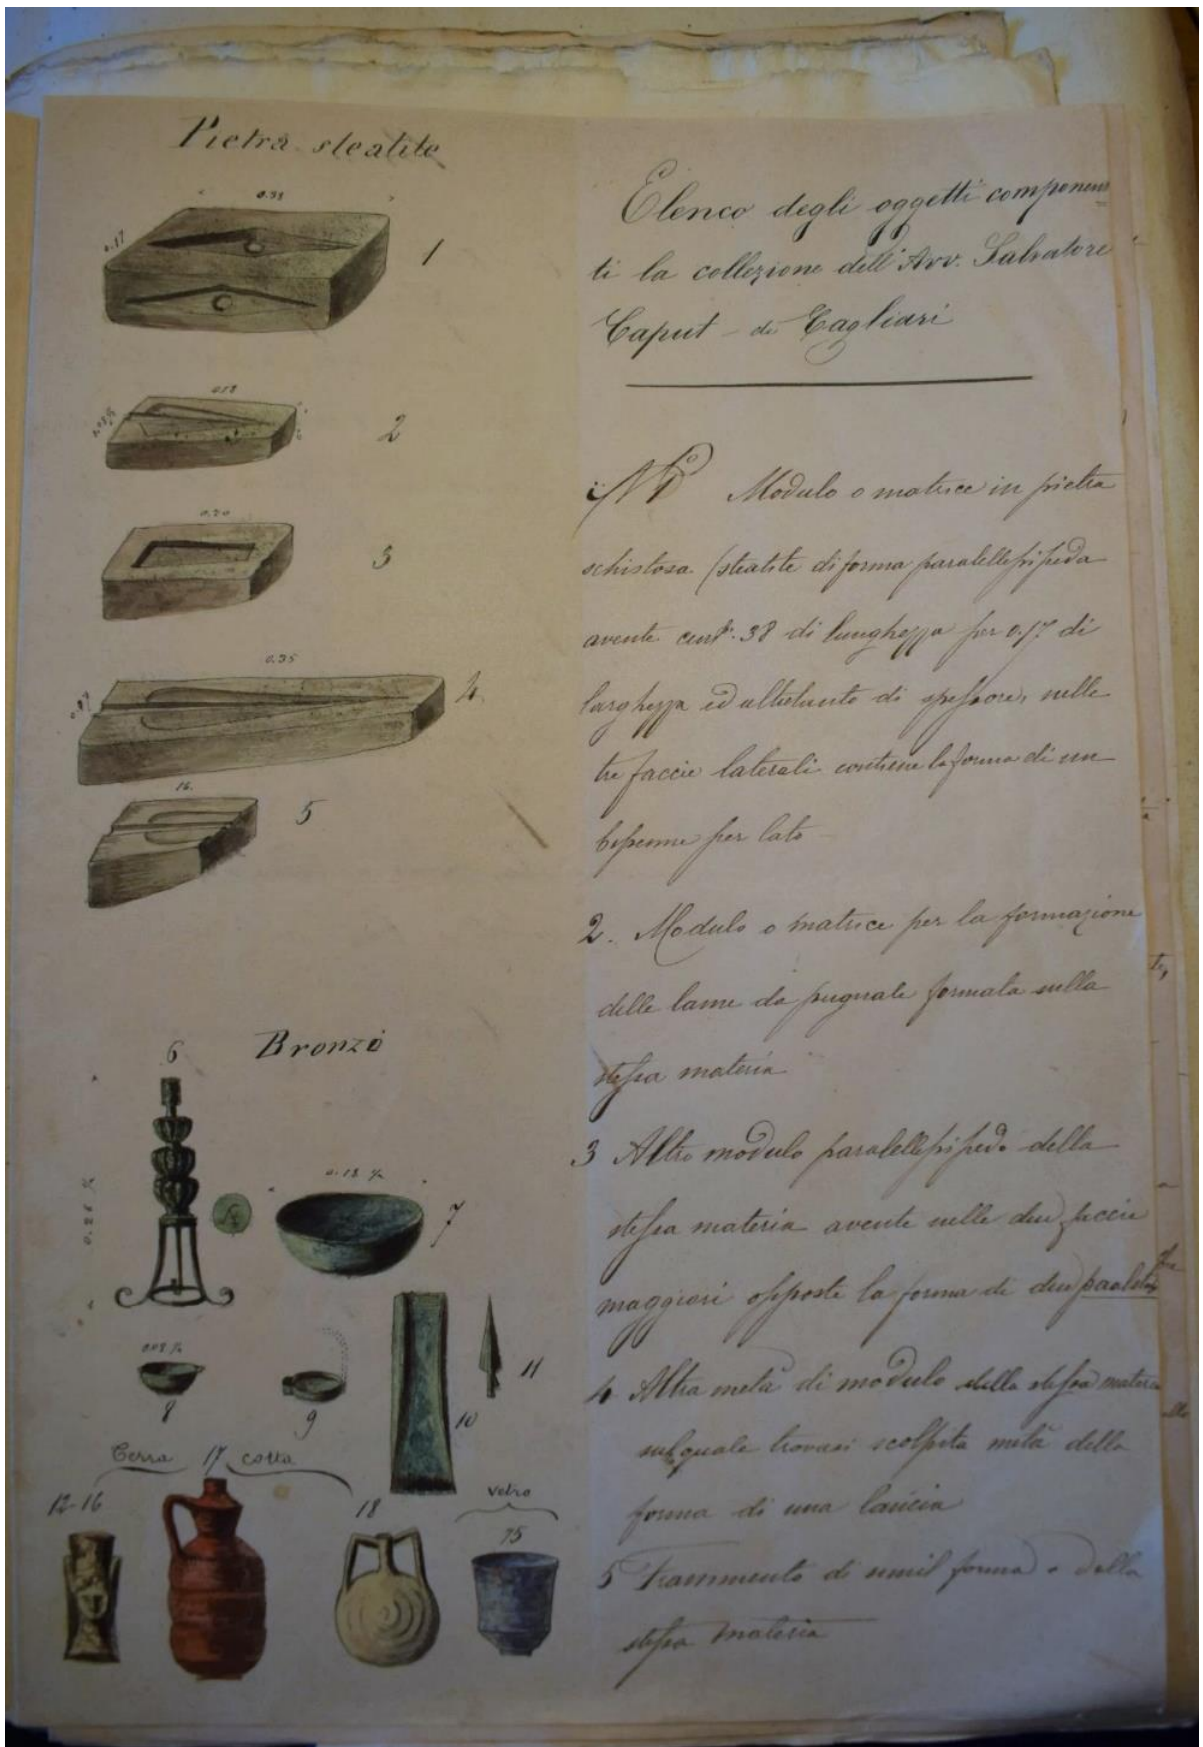 Pietra steatite
0.38
0.17
1
2
0.20
3
0.35
4
16.
5
Bronzo
6
0.18 ½
7
8
9
10
11
Terra 17 cotta
12-16
18
Vetro
75
Elenco degli oggetti componen
ti la collezione dell'Avv. Salvatore
Caput - di Cagliari
N 1º Modulo o matrice in pietra
schistosa (steatite di forma paralellepipeda
avente cent. 38 di lunghezza per 0.17 di
larghezza ed altretanto di spessore, nelle
tre faccie laterali contiene la forma di un
bipenne per lato
2. Modulo o matrice per la formazione
delle lame da pugnale formata nella
stessa materia
3 Altro modulo paralellepipedo della
stessa materia avente nelle due faccie
maggiori opposte la forma di due
4 Altra metà di modulo della stessa materia
sul quale trovasi scolpita metà della
forma di una lancia
5 Frammento di simil forma e della
stessa materia